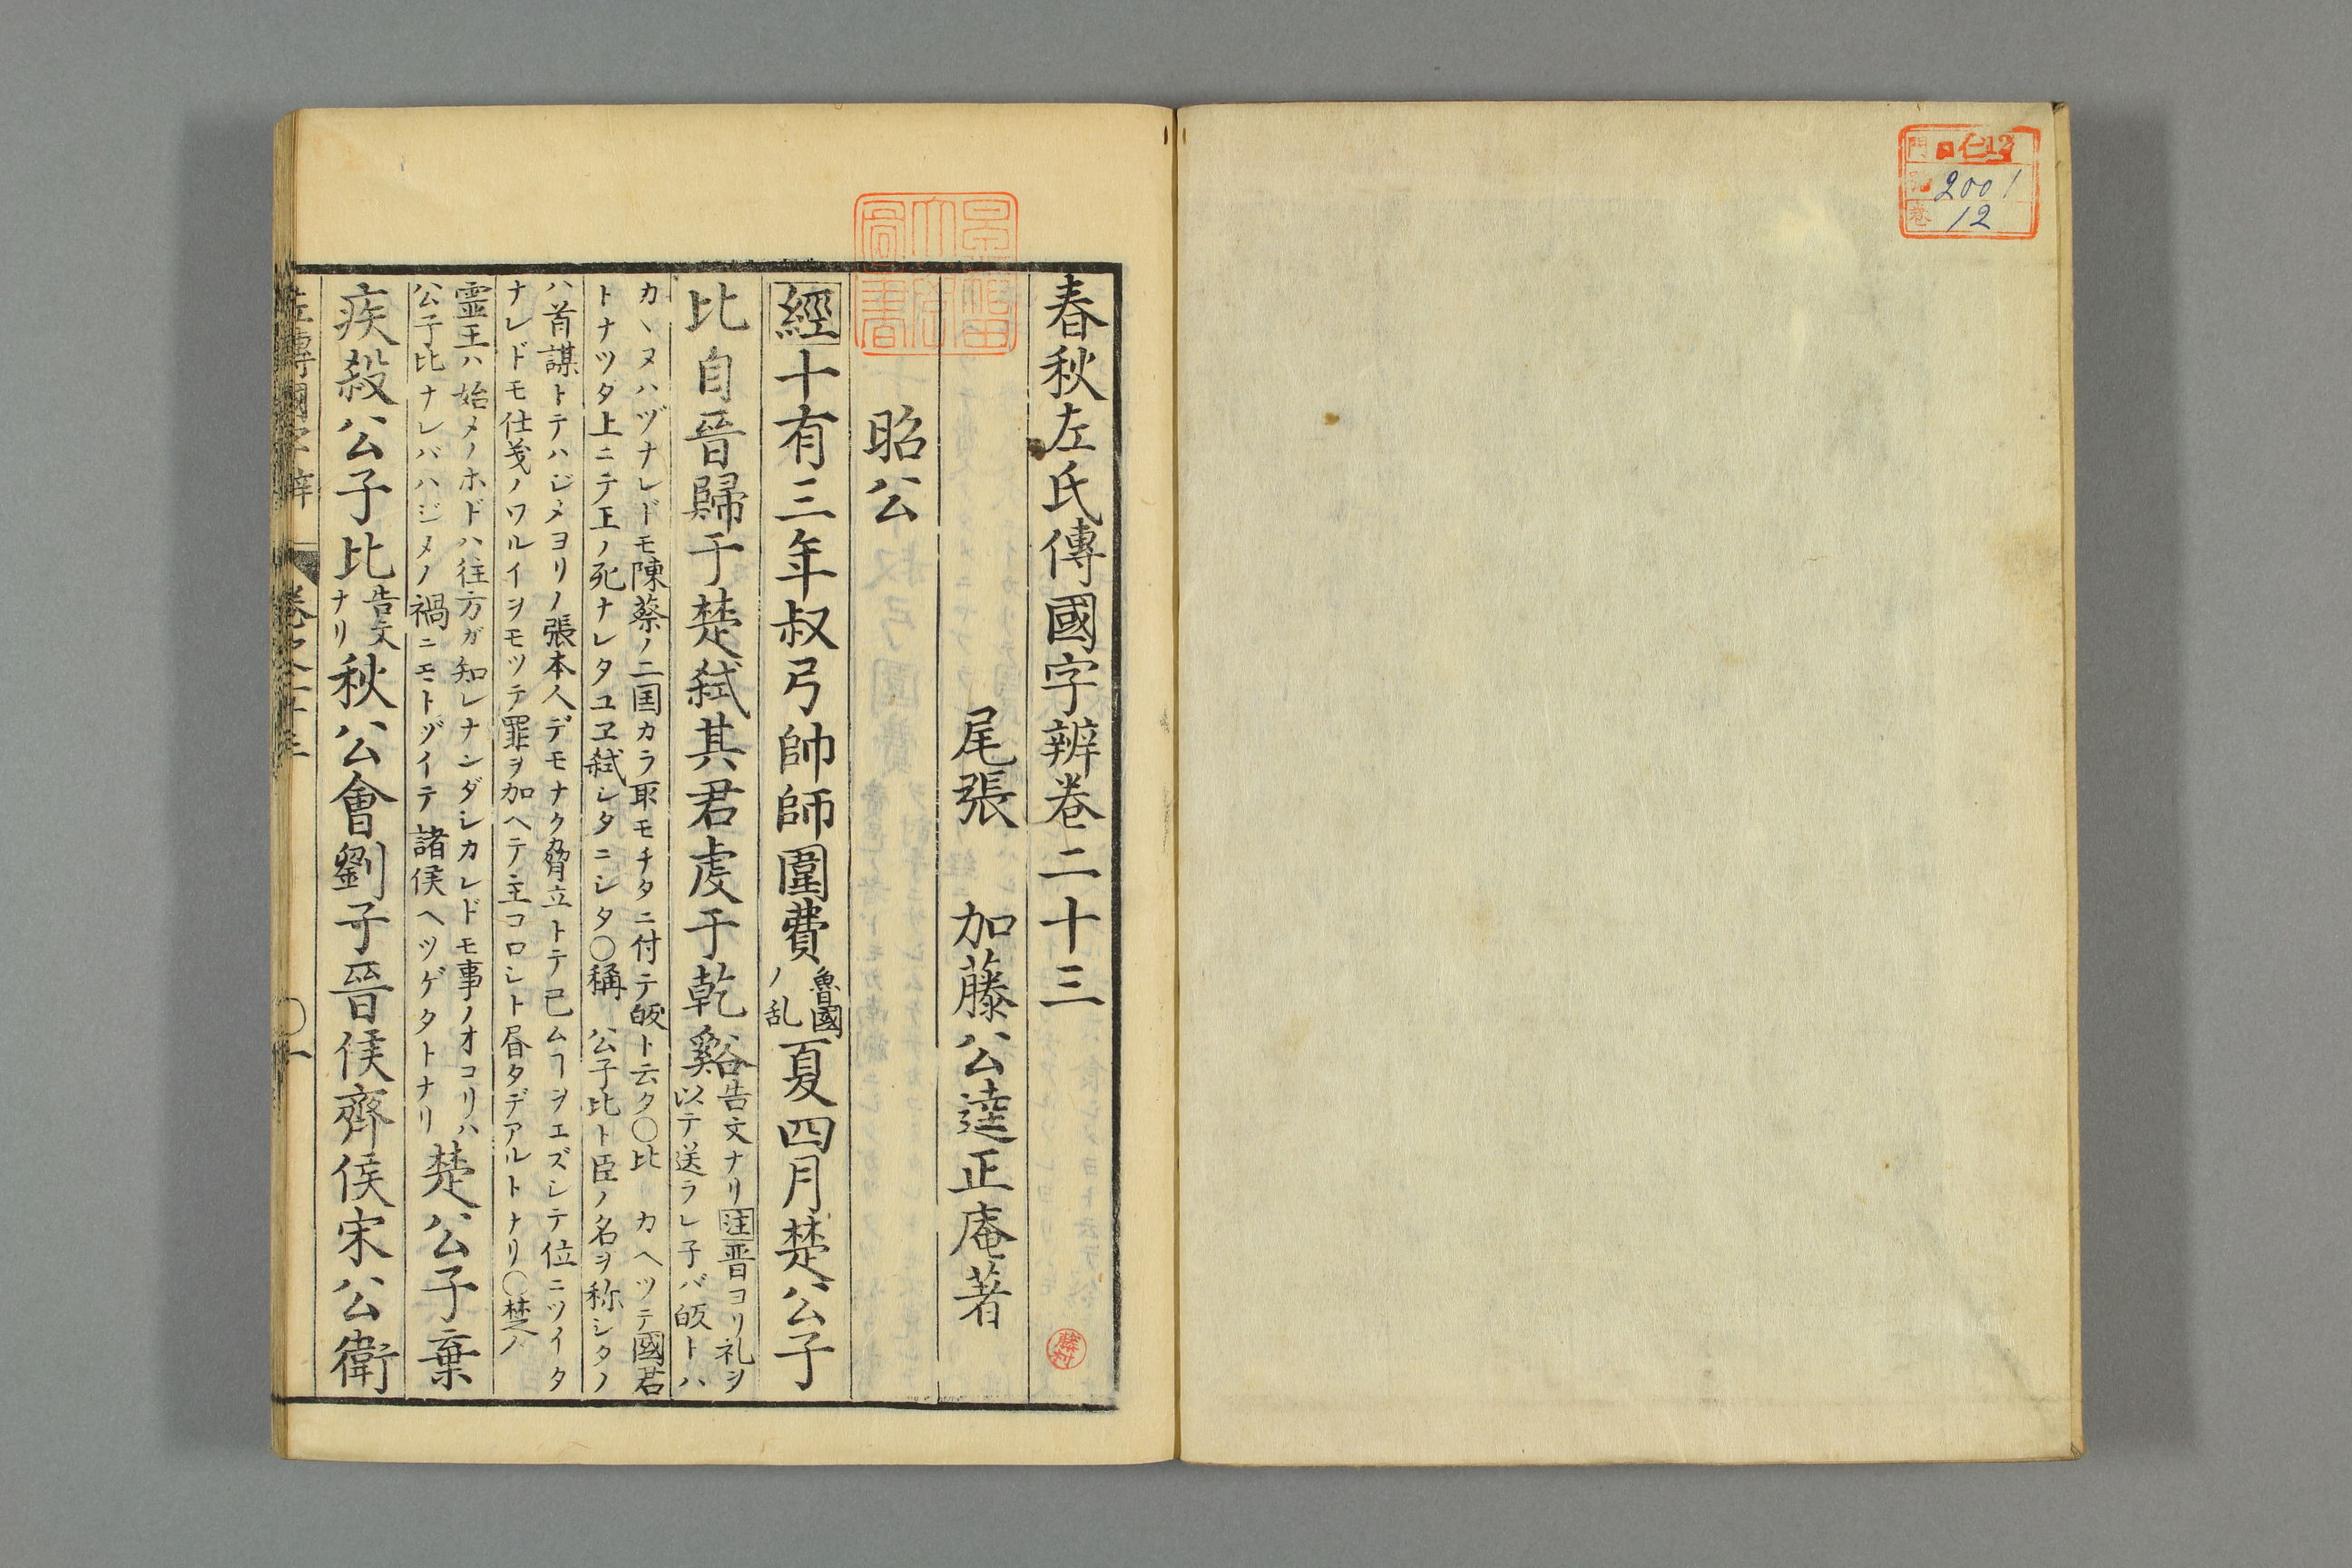 門 ロ仁12
号 2001
巻 12
春秋左氏傳國字辨卷二十三
尾張 加藤公逵正庵著
昭公
經十有三年叔弓帥師圍費
魯國
ノ乱
夏四月楚公子
比自晉歸于楚弑其君虔于乾谿
告文ナリ注晋ヨリ礼ヲ
以テ送ラレ子バ皈トハ
カヽヌハヅナレドモ陳蔡ノ二国カラ取モチタニ付テ皈ト云ク〇比 カヘツテ國君
トナツタ上ニテ王ノ死ナレタユヱ弑シタニシタ〇稱 公子比ト臣ノ名ヲ称シタノ
ハ首謀トテハジメヨリノ張本人デモナク脅立トテ已ムヿヲエズシテ位ニツイタ
ナレドモ仕義ノワルイヲモツテ罪ヲ加ヘテ主コロシト唇タデアルトナリ〇楚ノ
霊王ハ始メノホドハ往方ガ知レナンダシカレドモ事ノオコリハ
公子比ナレバハジメノ禍ニモトヅイテ諸侯ヘツゲタトナリ
楚公子棄
疾殺公子比
告文
ナリ
秋公會劉子晉侯齊侯宋公衛
左傳國字辨 卷之二十三 〇一
藤村